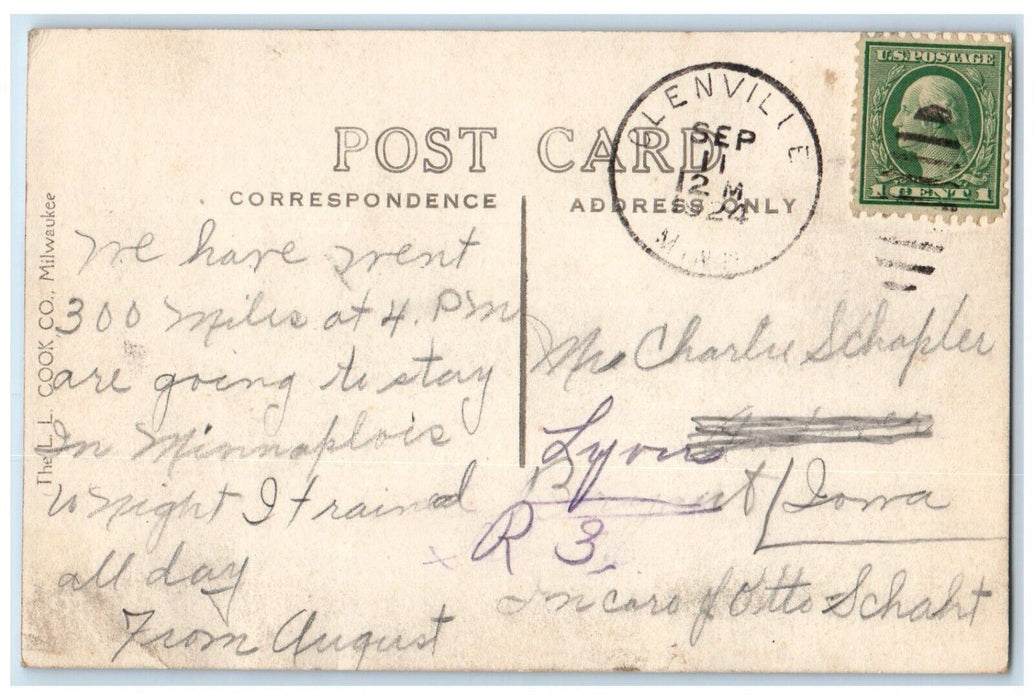 POST CARD
CORRESPONDENCE
ADDRESS ONLY
GLENVILLE
SEP
11
12 M
1924
MINN
U.S. POSTAGE
1 CENT 1
The L. L. COOK CO., Milwaukee
We have went
300 miles at 4. PM
are going to stay
In Minnaplois
to night It rained
all day
From August
Mr Charlie Schapler
Lyons
Iowa
R 3.
In care of Otto Schaht